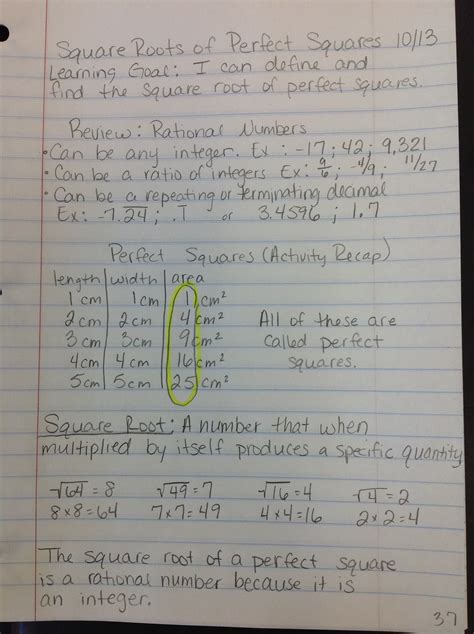 Square Roots of Perfect Squares 10/13
Learning Goal: I can define and
find the square root of perfect squares.
Review: Rational Numbers
• Can be any integer. Ex: -17; 42; 9,321
• Can be a ratio of integers Ex: 9/6; -4/9; 11/27
• Can be a repeating or terminating decimal
Ex: -7.24; .1̅ or 3.4596; 1.7
Perfect Squares (Activity Recap)
length | width | area
1 cm | 1 cm | 1 cm²
2 cm | 2 cm | 4 cm²
3 cm | 3 cm | 9 cm²
4 cm | 4 cm | 16 cm²
5 cm | 5 cm | 25 cm²
All of these are
called perfect
squares.
Square Root: A number that when
multiplied by itself produces a specific quantity
√64 = 8 √49 = 7 √16 = 4 √4 = 2
8×8=64 7×7=49 4×4=16 2×2=4
The square root of a perfect square
is a rational number because it is
an integer.
37